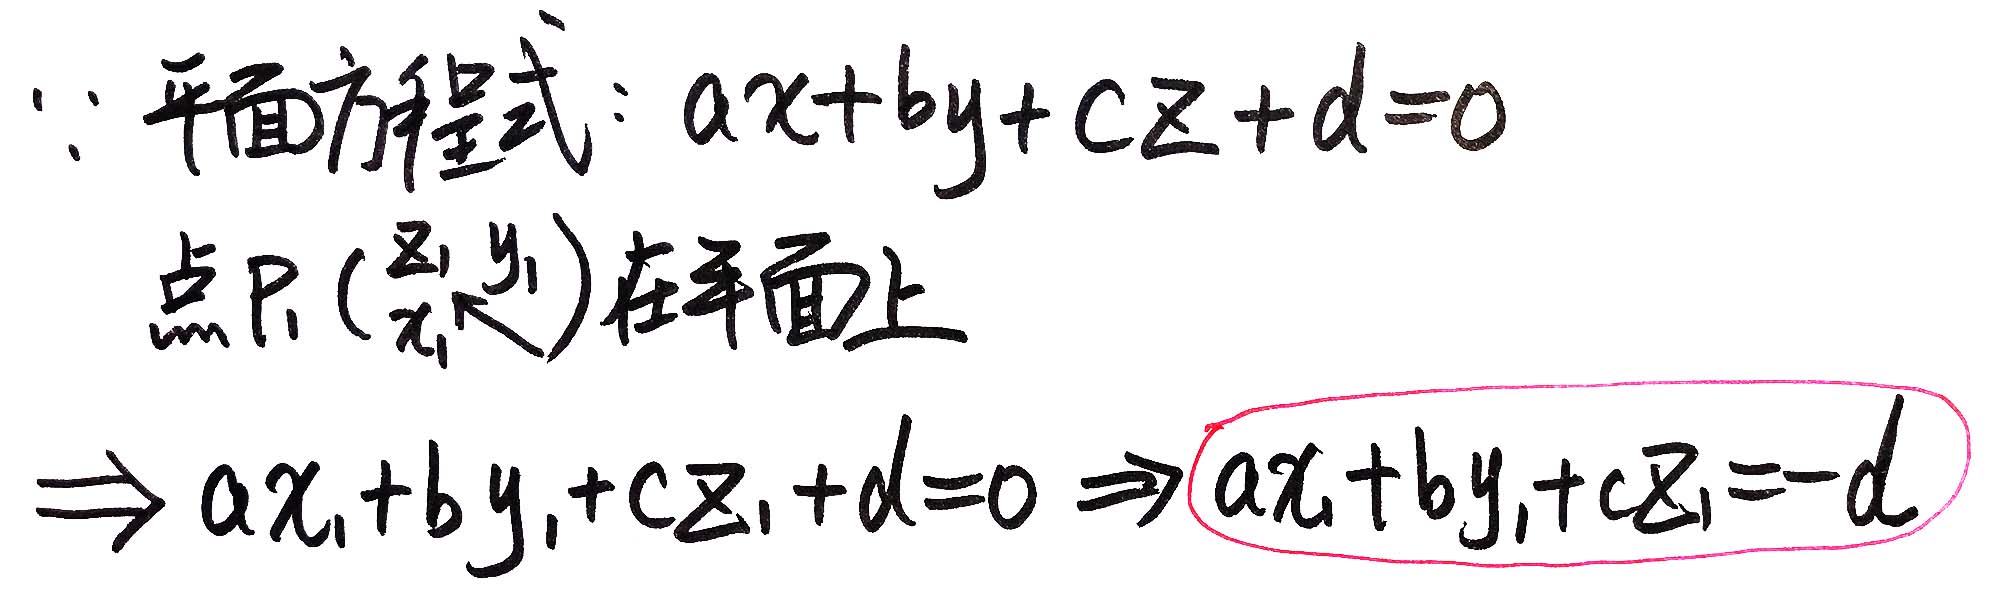 ∵ 平面方程式: ax+by+cz+d=0
点P₁(x₁ y₁ z₁)在平面上
⇒ ax₁+by₁+cz₁+d=0 ⇒ ax₁+by₁+cz₁=-d